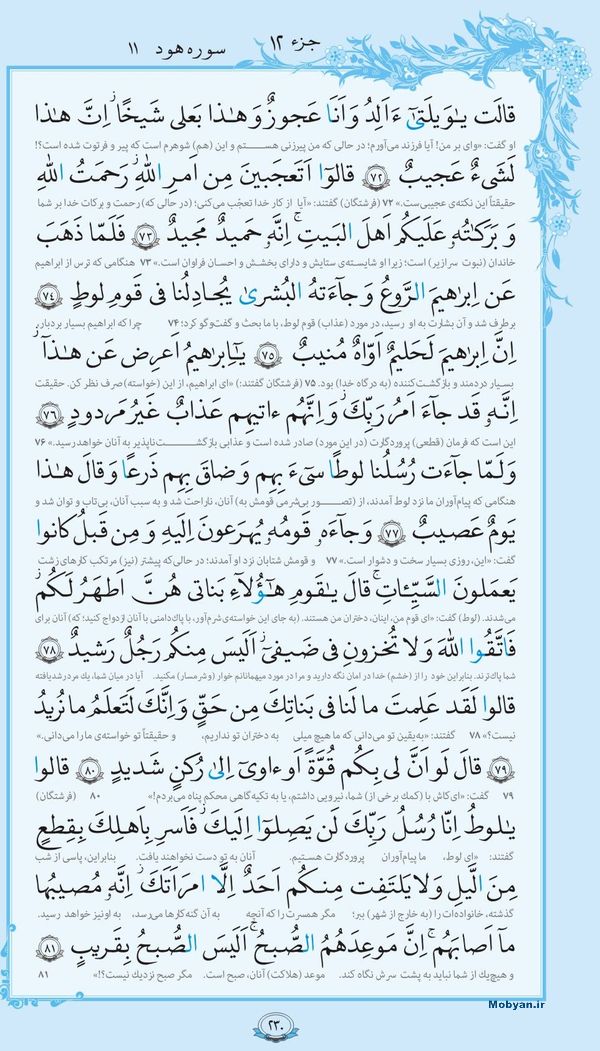 جزء ۱۲ سوره هود ۱۱
قالَت يٰوَيلَتىٰٓ ءَاَلِدُ وَ اَنَا عَجوزٌ وَ هٰذا بَعلى شَيخًا ۖ اِنَّ هٰذا
او گفت: «وای بر من! آیا فرزند می‌آورم؛ در حالی که من پیرزنی هستم و این (هم) شوهرم است که پیر و فرتوت شده است؟!
لَشَىءٌ عَجيبٌ ﴿۷۲﴾ قالوٓا اَتَعجَبينَ مِن اَمرِ اللّٰهِ ۖ رَحمَتُ اللّٰهِ
حقیقتاً این نکته‌ی عجیبی‌ست.» ۷۲ (فرشتگان) گفتند: «آیا از کار خدا تعجّب می‌کنی؛ (در حالی که) رحمت و برکات خدا بر شما
وَ بَرَكٰتُه عَلَيكُم اَهلَ البَيتِ ۚ اِنَّه حَميدٌ مَجيدٌ ﴿۷۳﴾ فَلَمّا ذَهَبَ
خاندان (نبوت سرازیر) است؛ زیرا او شایسته‌ی ستایش و دارای بخشش و احسان فراوان است.» ۷۳ هنگامی که ترس از ابراهیم
عَن اِبرٰهيمَ الرَّوعُ وَ جآءَتهُ البُشرىٰ يُجٰدِلُنا فى قَومِ لوطٍ ﴿۷۴﴾
برطرف شد و آن بشارت به او رسید، در مورد (عذاب) قوم لوط، با ما بحث و گفت‌وگو کرد؛ ۷۴ چرا که ابراهیم بسیار بردبار،
اِنَّ اِبرٰهيمَ لَحَليمٌ اَوّٰهٌ مُنيبٌ ﴿۷۵﴾ يٰٓاِبرٰهيمُ اَعرِض عَن هٰذآ ۖ
بسیار دردمند و بازگشت‌کننده (به درگاه خدا) بود. ۷۵ (فرشتگان گفتند:) «ای ابراهیم، از این (خواسته) صرف نظر کن. حقیقت
اِنَّه قَد جآءَ اَمرُ رَبِّكَ ۖ وَ اِنَّهُم ءاتيهِم عَذابٌ غَيرُ مَردودٍ ﴿۷۶﴾
این است که فرمان (قطعی) پروردگارت (در این مورد) صادر شده است و عذابی بازگشت‌ناپذیر به آنان خواهد رسید.» ۷۶
وَ لَمّا جآءَت رُسُلُنا لوطًا سىٓءَ بِهِم وَ ضاقَ بِهِم ذَرعًا وَ قالَ هٰذا
هنگامی که پیام‌آوران ما نزد لوط آمدند، از (تصور بی‌شرمی قومش به) آنان، ناراحت شد و به سبب آنان، بی‌تاب و توان شد و
يَومٌ عَصيبٌ ﴿۷۷﴾ وَ جآءَه قَومُه يُهرَعونَ اِلَيهِ وَ مِن قَبلُ كانوا
گفت: «این، روزی بسیار سخت و دشوار است.» ۷۷ و قومش شتابان نزد او آمدند؛ در حالی‌که پیشتر (نیز) مرتکب کارهای زشت
يَعمَلونَ السَّيِّـٔاتِ ۚ قالَ يٰقَومِ هٰٓؤُلآءِ بَناتى هُنَّ اَطهَرُ لَكُم ۖ
می‌شدند. (لوط) گفت: «ای قوم من، اینان، دختران من هستند. (به جای این خواسته‌ی شرم‌آور، با پاک‌دامنی با آنان ازدواج کنید؛ که) آنان برای
فَاتَّقُوا اللّٰهَ وَ لا تُخزونِ فى ضَيفى ۖ اَلَيسَ مِنكُم رَجُلٌ رَشيدٌ ﴿۷۸﴾
شما پاک‌ترند. بنابراین خود را از (خشم) خدا در امان نگه دارید و مرا در مورد میهمانانم خوار (و شرمسار) مکنید. آیا در میان شما، یك مرد رشدیافته
قالوا لَقَد عَلِمتَ ما لَنا فى بَناتِكَ مِن حَقٍّ وَ اِنَّكَ لَتَعلَمُ ما نُريدُ
نیست؟» ۷۸ گفتند: «به‌یقین تو می‌دانی که ما هیچ میلی به دختران تو نداریم، و حقیقتاً تو خواسته‌ی ما را می‌دانی.»
﴿۷۹﴾ قالَ لَو اَنَّ لى بِكُم قُوَّةً اَو ءاوىٓ اِلىٰ رُكنٍ شَديدٍ ﴿۸۰﴾ قالوا
۷۹ گفت: «ای‌کاش با (کمك برخی از) شما، نیرویی داشتم، یا به تکیه‌گاهی محکم پناه می‌بردم!» ۸۰ (فرشتگان)
يٰلوطُ اِنّا رُسُلُ رَبِّكَ لَن يَصِلوٓا اِلَيكَ ۖ فَاَسرِ بِاَهلِكَ بِقِطعٍ
گفتند: «ای لوط، ما پیام‌آوران پروردگارت هستیم. آنان به تو دست نخواهند یافت. بنابراین، پاسی از شب
مِنَ الَّيلِ وَ لا يَلتَفِت مِنكُم اَحَدٌ اِلَّا امرَاَتَكَ ۖ اِنَّه مُصيبُها
گذشته، خانواده‌ات را (به خارج از شهر) ببر؛ مگر همسرت را که آنچه به آن گنه‌کارها می‌رسد، به او نیز خواهد رسید.
مآ اَصابَهُم ۚ اِنَّ مَوعِدَهُمُ الصُّبحُ ۚ اَلَيسَ الصُّبحُ بِقَريبٍ ﴿۸۱﴾
و هیچ‌یك از شما نباید به پشت سرش نگاه کند. موعد (هلاکت) آنان، صبح است. مگر صبح نزدیك نیست؟!» ۸۱
Mobyan.ir
۲۳۰